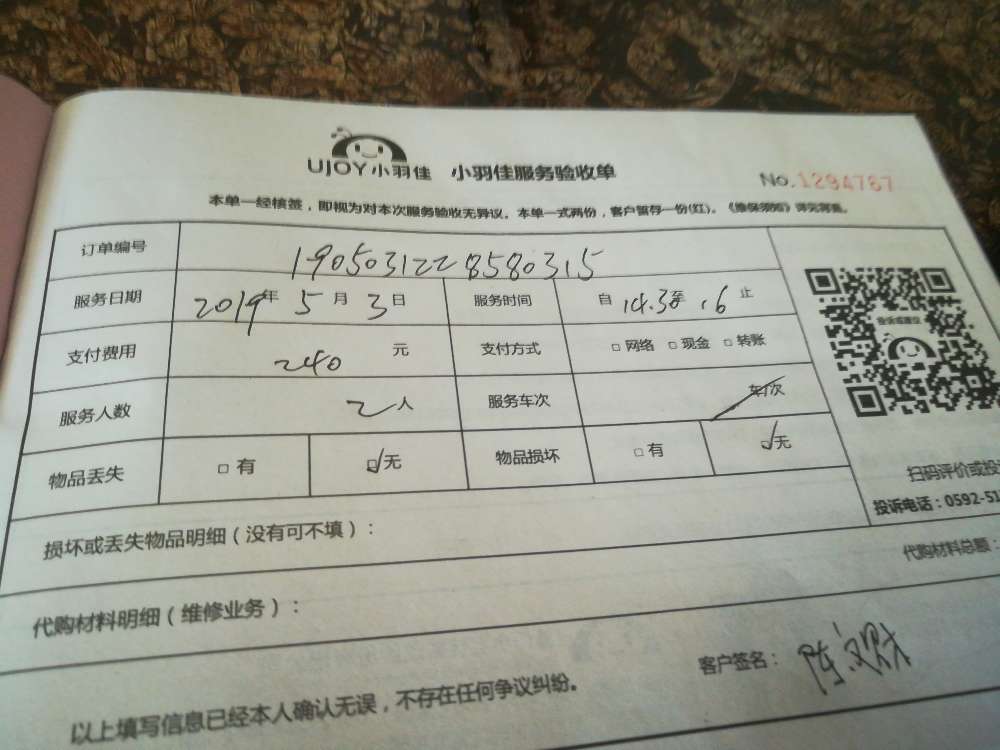 UJOY小羽佳 小羽佳服务验收单
No.1294767
本单一经核签，即视为对本次服务验收无异议。本单一式两份，客户留存一份(红)。《维保须知》详见背面。
订单编号 1905031228580315
服务日期 2019年5月3日 服务时间 自14.30至16止
支付费用 240元 支付方式 □网络 □现金 □转账
投诉或建议
服务人数 2人 服务车次 车/次
物品丢失 □有 ☑无 物品损坏 □有 ☑无
扫码评价或投
投诉电话：0592-51
损坏或丢失物品明细（没有可不填）：
代购材料总额：
代购材料明细（维修业务）：
客户签名：陈
以上填写信息已经本人确认无误，不存在任何争议纠纷。